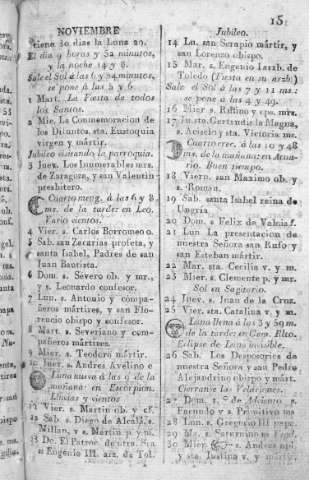 15
NOVIEMBRE
tiene 30 dias la Luna 29.
El dia 9 horas y 52 minutos,
y la noche 14 y 8.
Sale el Sol á las 6 y 54 minutos,
se pone á las 5 y 6.
1 Mart. La Fiesta de todos
los Santos.
2 Mie. La Conmemoracion de
los Difuntos, sta. Eustoquia
virgen y mártir.
Jubileo visitando la parroquia.
3 Juev. Los Inumerables mrs.
de Zaragoza, y san Valentin
presbitero.
Cuarto meng. á las 6 y 8
ms. de la tarde en Leo.
Vario vientos.
4 Vier. s. Carlos Borromeo o.
5 Sab. san Zecarias profeta, y
santa Isabel, Padres de san
Juan Bautista.
6 Dom. s. Severo ob. y mr.,
y s. Leonardo confesor.
7 Lun. s. Antonio y compa-
ñeros mártires, y san Flo-
rencio obispo y confesor.
8 Mart. s. Severiano y com-
pañeros mártires.
9 Mier. s. Teodoro mártir.
10 Juev. s. Andres Avelino
Luna nueva á las 9 de la
mañana: en Escorpion.
Lluvias y vientos
11 Vier. s. Martin ob. y cf.
12 Sab. s. Diego de Alcalá, s.
Millan, y s. Martin p. y m.
13 Do. El Patroc. de ntra. Sra
s. Eugenio III. arz. de Tol.
Jubileo.
14 Lu. san Serapio mártir, y
san Lorenzo obispo.
15 Mar. s. Eugenio I arzb. de
Toledo (Fiesta en su arzb.)
Sale el Sol á las 7 y 11 ms:
se pone á las 4 y 49.
16 Mier s. Rufino y cps. mrs.
17 Ju. sto. Gertrudis la Magna,
s. Acisclo y sta. Victoria ms.
Cuarto crec. á las 10 y 48
ms. de la mañana: en Acua-
rio. Buen tiempo.
18 Viern. san Maximo ob. y
s. Roman.
19 Sab. santa Isabel reina de
Ungria.
20 Dom. s. Felix de Valois f.
21 Lun La presentacion de
nuestra Señora san Rufo y
san Esteban mártir.
22 Mar. sta. Cecilia v. y m.
23 Mier. s. Clemente p. y mr.
Sol en Sagitario.
24 Juev. s. Juan de la Cruz.
25 Vier. sta. Catalina v. y m.
Luna llena á las 3 y 59 m.
de la tarde: en Gem. Elto.
Eclipse de Luna invisible.
26 Sab. Los Desposorios de
nuestra Señora y san Pedro
Alejandrino obispo y márt.
Cierranse las Velaciones.
27 Dom. 1.º de Adviento s.
Facundo y s. Primitivo ms
28 Lun. s. Gregorio III papa.
29 Ma. s. Saturnino
30 Mier. s. Andres ap.
y sta. Justina v. y mártir